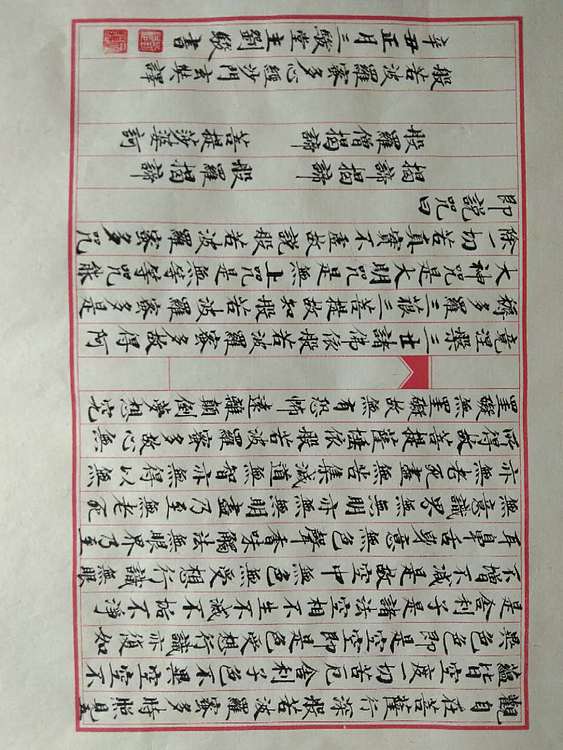 觀自在菩薩行深般若波羅蜜多時照見五
蘊皆空度一切苦厄舍利子色不異空空不
異色色即是空空即是色受想行識亦復如
是舍利子是諸法空相不生不滅不垢不淨
不增不減是故空中無色無受想行識無眼
耳鼻舌身意無色聲香味觸法無眼界乃至
無意識界無無明亦無無明盡乃至無老死
亦無老死盡無苦集滅道無智亦無得以無
所得故菩提薩埵依般若波羅蜜多故心無
罣礙無罣礙故無有恐怖遠離顛倒夢想究
竟涅槃三世諸佛依般若波羅蜜多故得阿
耨多羅三藐三菩提故知般若波羅蜜多是
大神咒是大明咒是無上咒是無等等咒能
除一切苦真實不虛故說般若波羅蜜多咒
即說咒曰
揭諦揭諦 般羅揭諦
般羅僧揭諦 菩提莎婆訶
般若波羅蜜多心經沙門玄奘譯
辛丑正月三駿堂主劉駿書